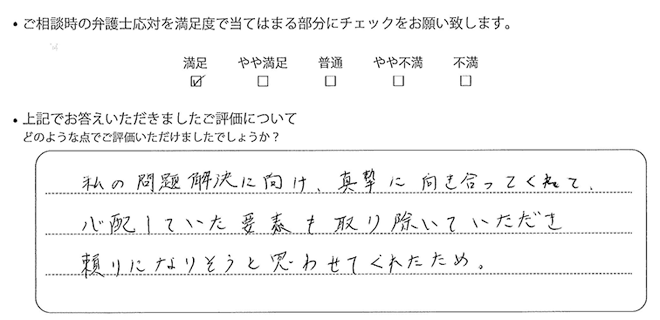 • ご相談時の弁護士応対を満足度で当てはまる部分にチェックをお願い致します。
満足 やや満足 普通 やや不満 不満
☑ ☐ ☐ ☐ ☐
• 上記でお答えいただきましたご評価について
どのような点でご評価いただけましたでしょうか？
私の問題解決に向け、真摯に向き合ってくれて、
心配していた要素も取り除いていただき
頼りになりそうと思わせてくれたため。